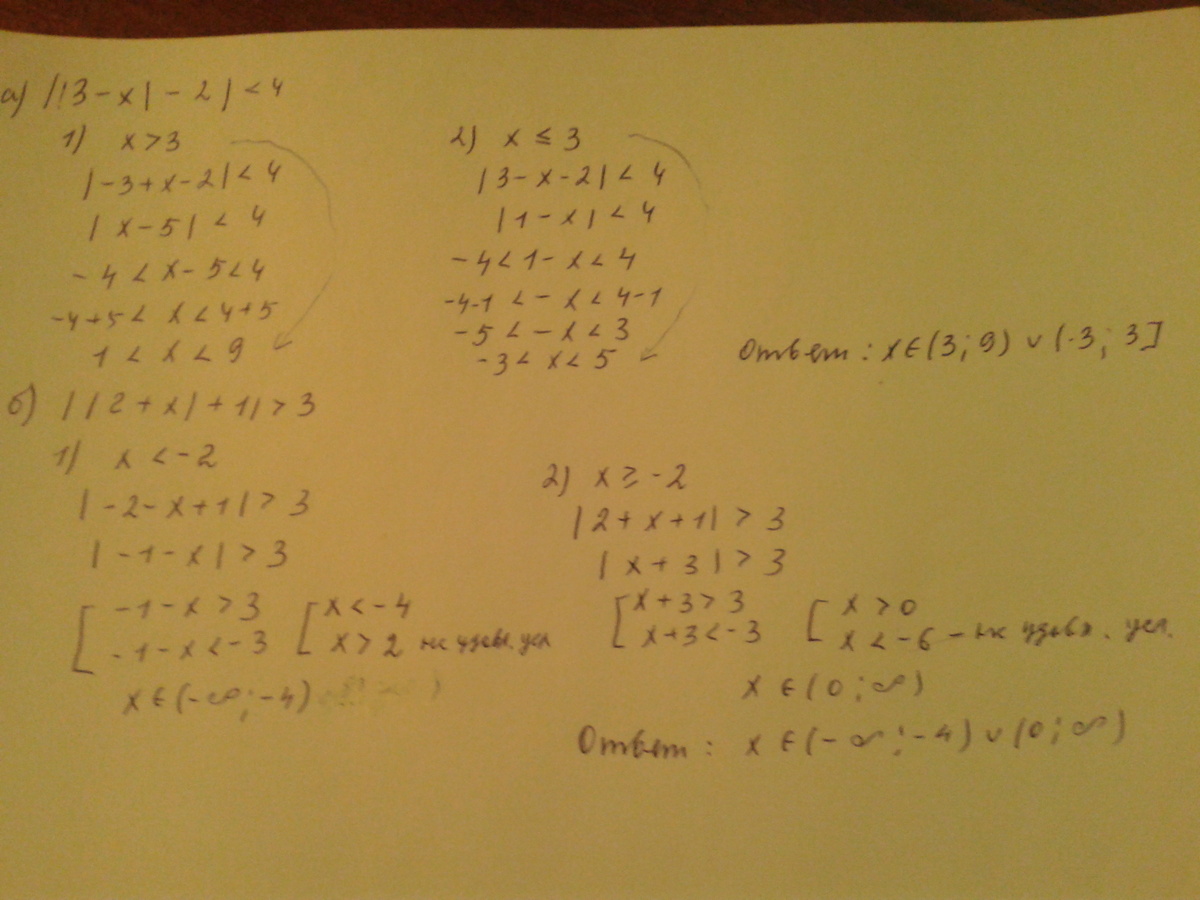 а) ||3-x|-2|<4
1) x>3
|-3+x-2|<4
|x-5|<4
-4<x-5<4
-4+5<x<4+5
1<x<9
2) x≤3
|3-x-2|<4
|1-x|<4
-4<1-x<4
-4-1<-x<4-1
-5<-x<3
-3<x<5
Ответ: x∈(3;9)∪(-3;3]
б) ||2+x|+1|>3
1) x<-2
|-2-x+1|>3
|-1-x|>3
[-1-x>3 [x<-4
-1-x<-3 x>2 не удовл. усл
x∈(-∞;-4)
2) x≥-2
|2+x+1|>3
|x+3|>3
[x+3>3 [x>0
x+3<-3 x<-6 - не удовл. усл.
x∈(0;∞)
Ответ: x∈(-∞;-4)∪(0;∞)